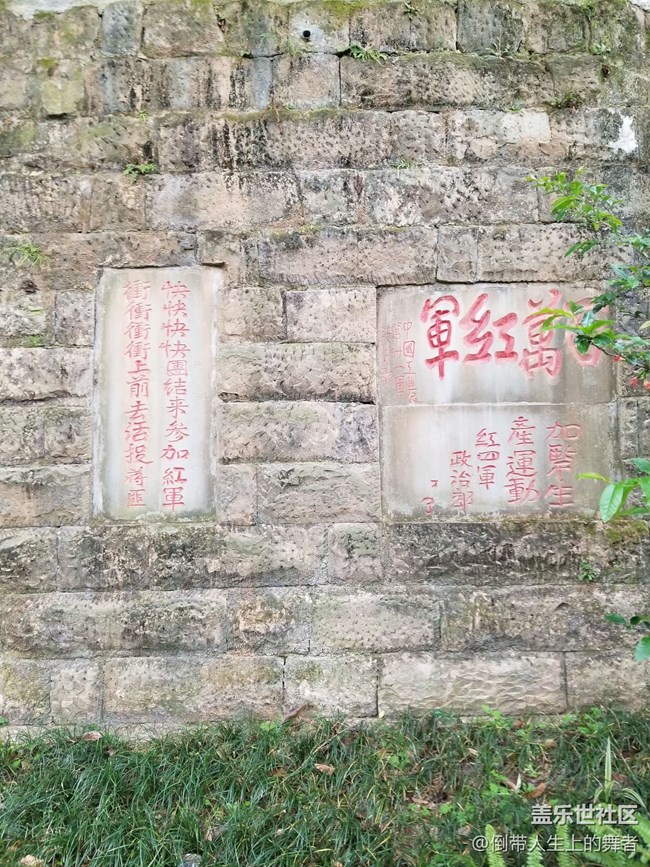 萬紅軍
加緊生
產運動
紅四軍
政治部
快快快快團結来參加紅軍
衝衝衝衝上前去活捉蔣匪
盖乐世社区
@倒带人生上的舞者